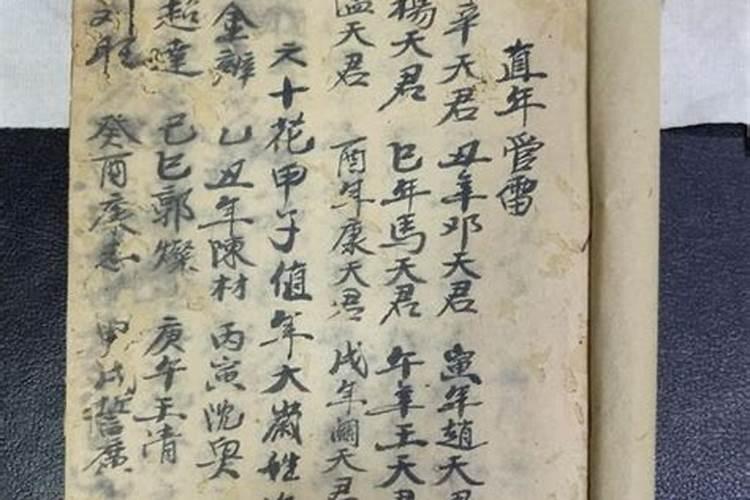 直年管雷
辛天君 丑年邓天君 寅年趙天君
楊天君 巳年馬天君 午年王天君
温天君 酉年康天君 戌年關天君
六十花甲子值年大歲姓
金辦 乙丑年陳材 丙寅沈興
超達 己巳郭燦 庚午王清
刘旺 癸酉康志 甲戌誓廣